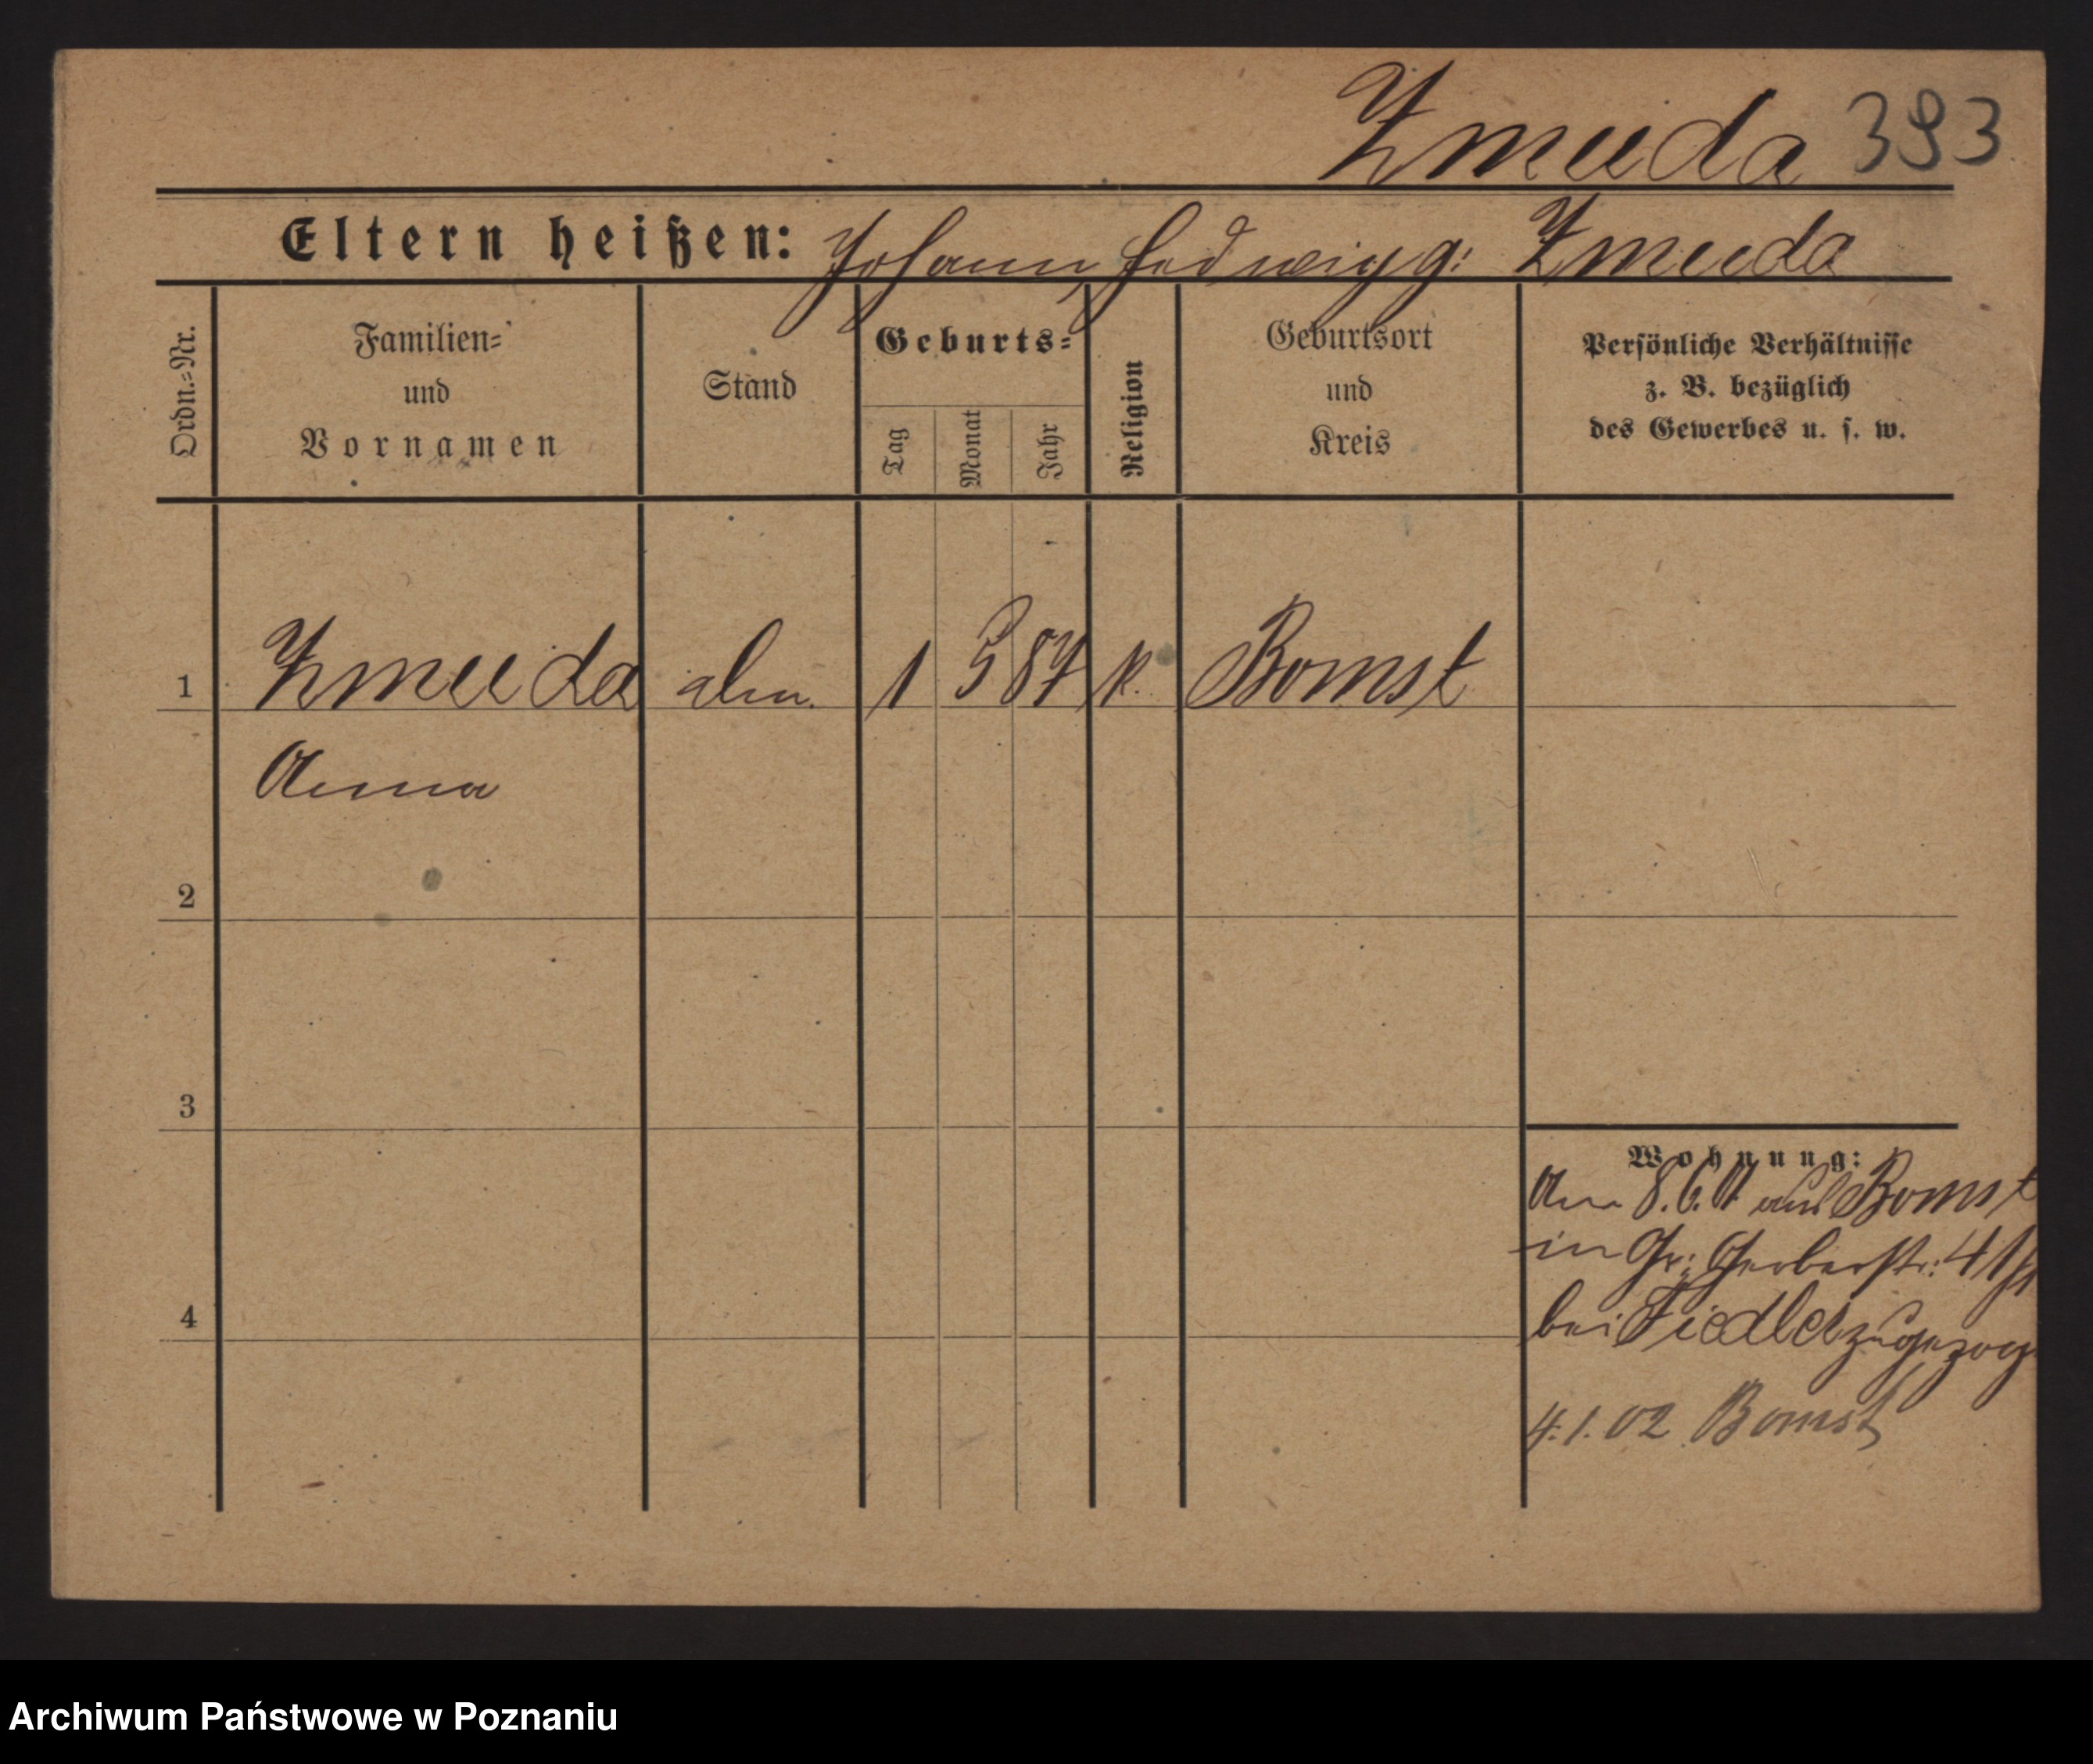 Zmuda 393
Eltern heißen: Johann, Hedwig g: Zmuda
Ordn.=Nr.
Familien=
und
Vornamen
Stand
Geburts=
Tag
Monat
Jahr
Religion
Geburtsort
und
Kreis
Persönliche Verhältnisse
z. B. bezüglich
des Gewerbes u. s. w.
1 Zmuda 1 5 87 k. Bomst
Anna
2
3
Wohnung:
Am 8.6.01 aus Bomst
in Gr: Gerberstr: 41
4
bei Fiedler zugezog
4.1.02 Bomst
Archiwum Państwowe w Poznaniu